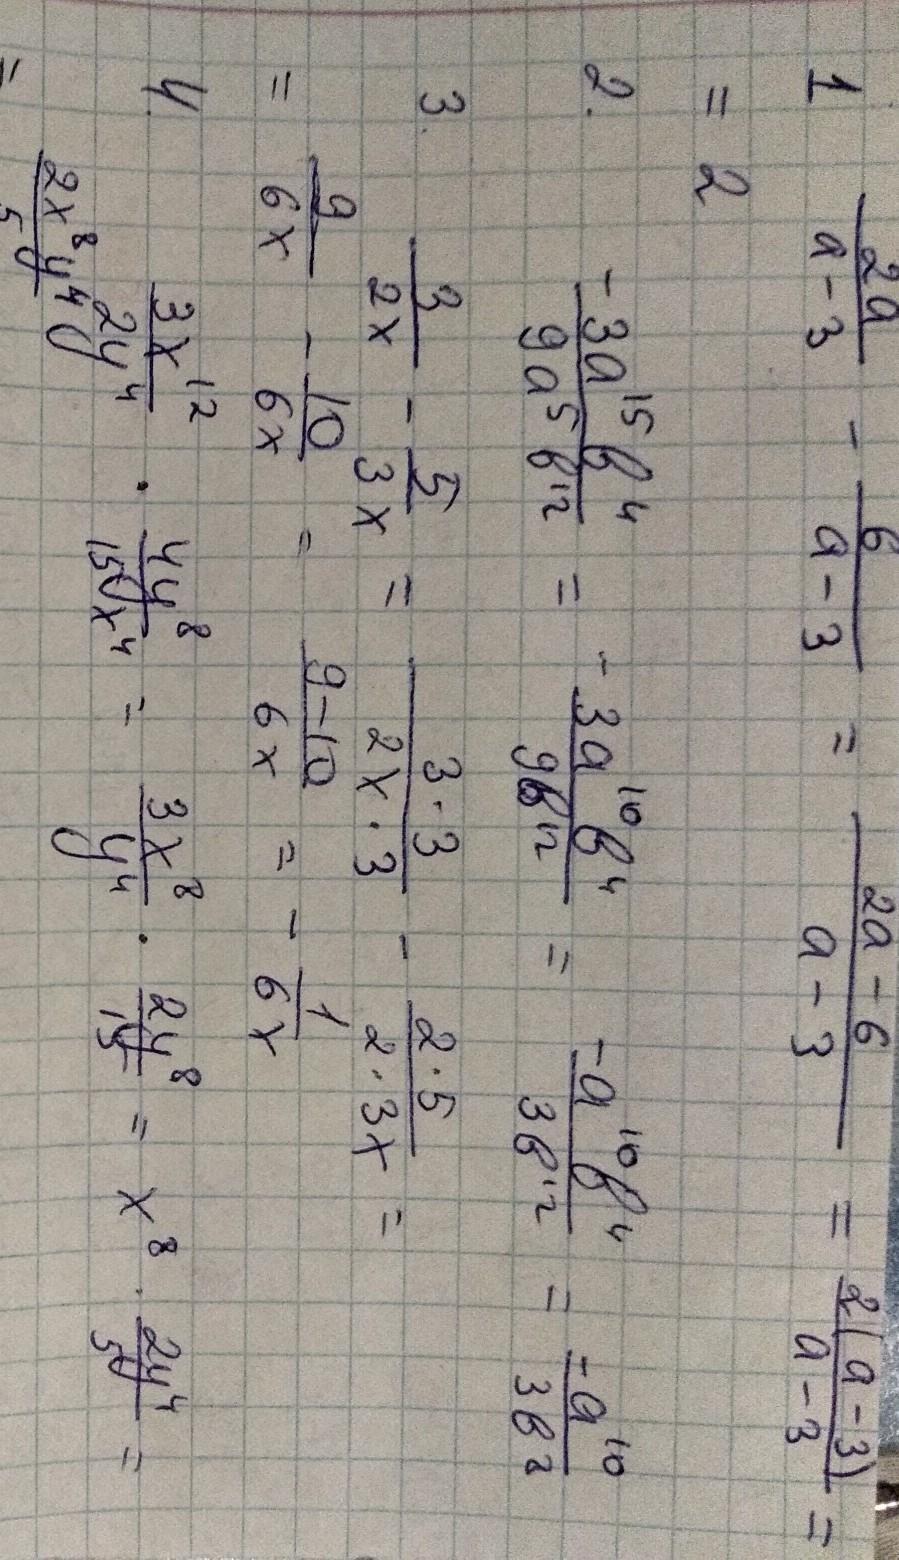 1. 2a/(a-3) - 6/(a-3) = (2a-6)/(a-3) = 2(a-3)/(a-3) =
= 2
2. -3a¹⁵b⁴/(9a⁵b¹²) = -3a¹⁰b⁴/(9b¹²) = -a¹⁰b⁴/(3b¹²) = -a¹⁰/(3b⁸)
3. 3/(2x) - 5/(3x) = (3·3)/(2x·3) - (2·5)/(2·3x) =
= 9/(6x) - 10/(6x) = (9-10)/(6x) = -1/(6x)
4. 3x¹²/(2y⁴) · 4y⁸/(15x⁴) = 3x⁸/y⁴ · 2y⁸/15 = x⁸ · 2y⁴/5 =
= 2x⁸y⁴/5